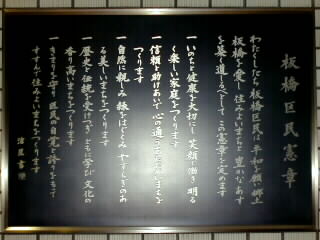 板橋区民憲章
わたくしたち板橋区民は、平和を願い郷土
板橋を愛し 住みよいまちと 豊かなあす
を築く道しるべとして この憲章を定めます
一 いのちと健康を大切にし 笑顔で働き 明る
く楽しい家庭をつくります
一 信頼と助けあいで 心の通うまちを
つくります
一 自然に親しみ 緑をはぐくみ やすらぎのあ
る美しいまちをつくります
一 歴史と伝統を受けつぎ ともに学び 文化の
香り高いまちをつくります
一 きまりを守り 区民の自覚と誇りをもって
すすんで住みよいまちをつくります